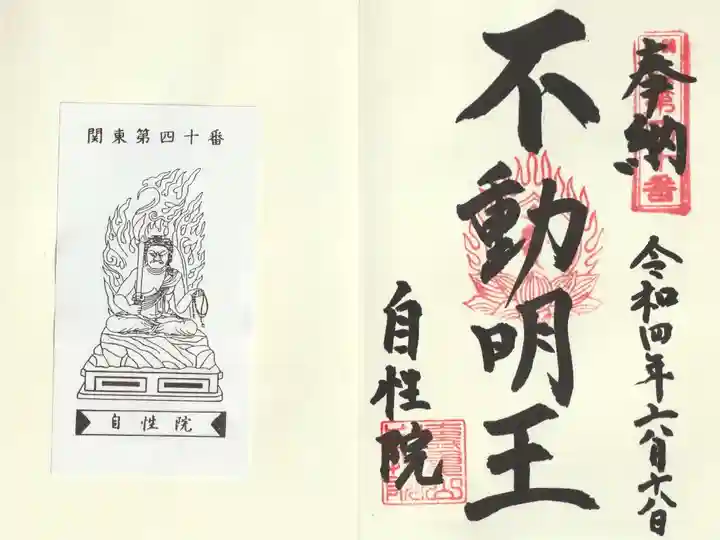 関東第四十番
自性院
奉納
不動明王
令和四年六月十八日
自性院